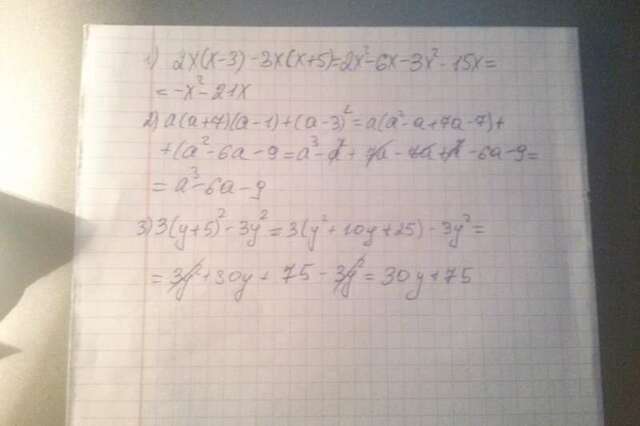 1) 2x(x-3)-3x(x+5)=2x²-6x-3x²-15x=
=-x²-21x
2) a(a+7)(a-1)+(a-3)²=a(a²-a+7a-7)+
+(a²-6a-9=a³-a²+7a-7a+a²-6a-9=
=a³-6a-9
3) 3(y+5)²-3y²=3(y²+10y+25)-3y²=
=3y²+30y+75-3y²=30y+75